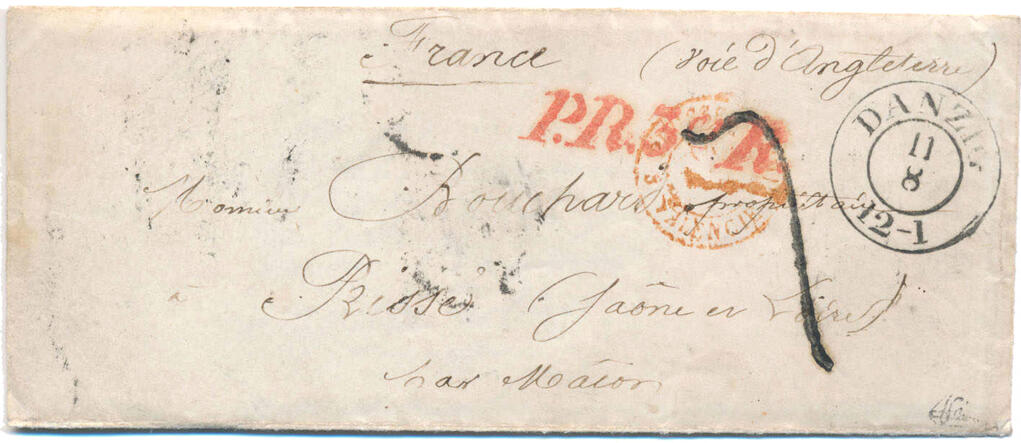 France (voie d'Angleterre)
P.R.3e R.
DANZIG
11
8
12-1
VALENCIE
7
Monsieur Bouchard, propriétaire
à Rissé (Saône et Loire)
par Macon